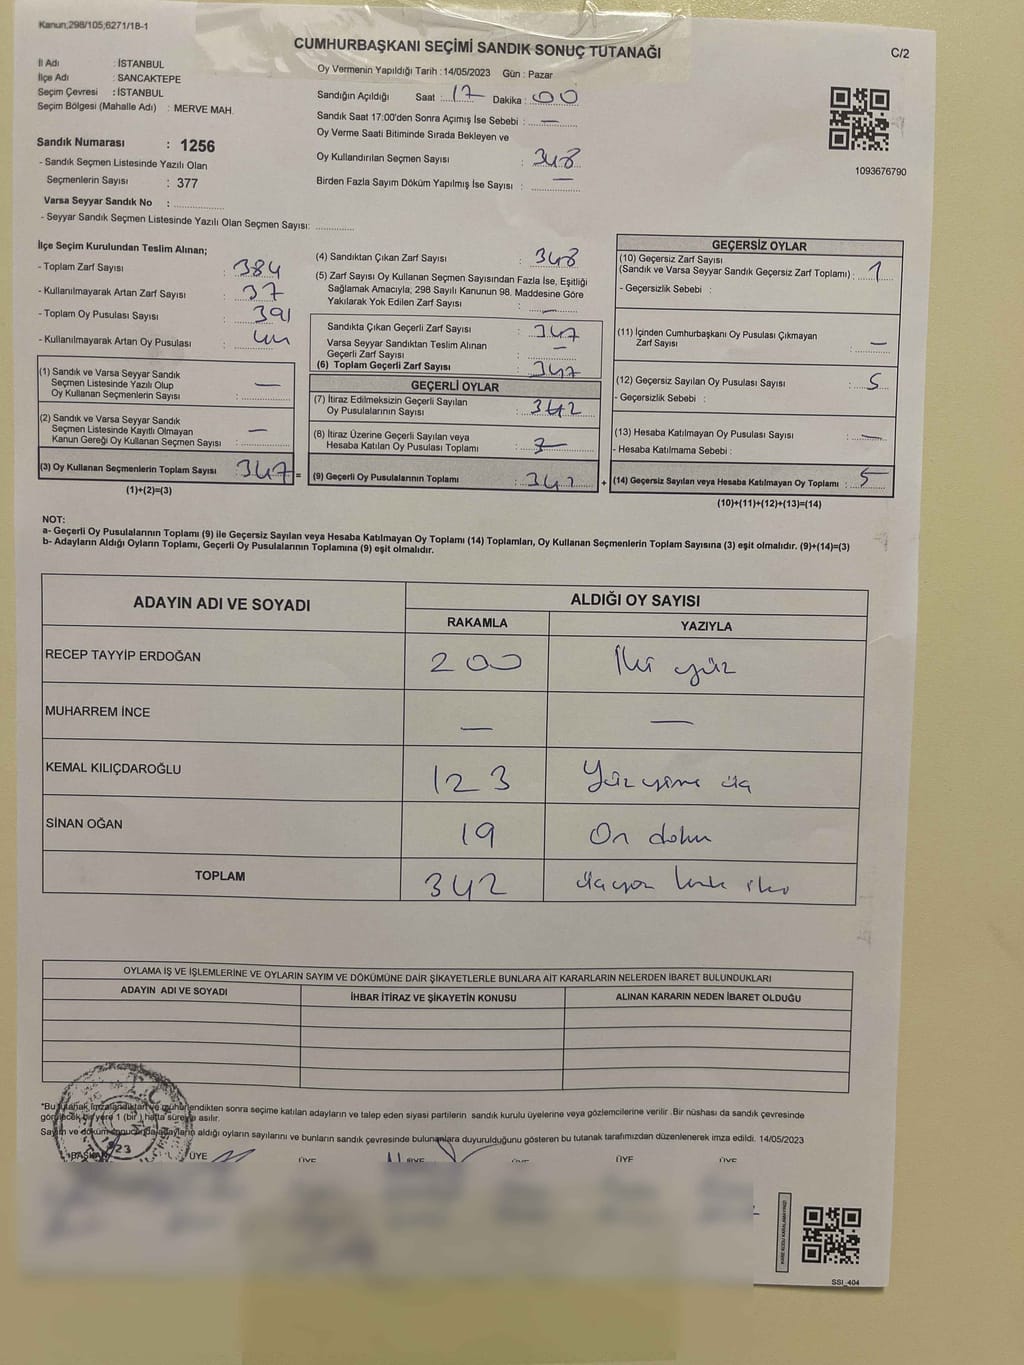 Kanun;298/105;6271/18-1
CUMHURBAŞKANI SEÇİMİ SANDIK SONUÇ TUTANAĞI
C/2
İl Adı : İSTANBUL
İlçe Adı : SANCAKTEPE
Seçim Çevresi : İSTANBUL
Seçim Bölgesi (Mahalle Adı) : MERVE MAH.
Oy Vermenin Yapıldığı Tarih : 14/05/2023 Gün : Pazar
Sandığın Açıldığı Saat : 17 Dakika : 00
Sandık Saat 17:00'den Sonra Açımış İse Sebebi : —
Oy Verme Saati Bitiminde Sırada Bekleyen ve
Oy Kullandırılan Seçmen Sayısı : 348
Birden Fazla Sayım Döküm Yapılmış İse Sayısı : —
1093676790
Sandık Numarası : 1256
- Sandık Seçmen Listesinde Yazılı Olan
Seçmenlerin Sayısı : 377
Varsa Seyyar Sandık No :
- Seyyar Sandık Seçmen Listesinde Yazılı Olan Seçmen Sayısı:
İlçe Seçim Kurulundan Teslim Alınan;
- Toplam Zarf Sayısı : 384
- Kullanılmayarak Artan Zarf Sayısı : 37
- Toplam Oy Pusulası Sayısı : 391
- Kullanılmayarak Artan Oy Pusulası :
(1) Sandık ve Varsa Seyyar Sandık
Seçmen Listesinde Yazılı Olup
Oy Kullanan Seçmenlerin Sayısı : —
(2) Sandık ve Varsa Seyyar Sandık
Seçmen Listesinde Kayıtlı Olmayan
Kanun Gereği Oy Kullanan Seçmen Sayısı : —
(3) Oy Kullanan Seçmenlerin Toplam Sayısı : 347 =
(1)+(2)=(3)
(4) Sandıktan Çıkan Zarf Sayısı : 348
(5) Zarf Sayısı Oy Kullanan Seçmen Sayısından Fazla İse, Eşitliği
Sağlamak Amacıyla, 298 Sayılı Kanunun 98. Maddesine Göre
Yakılarak Yok Edilen Zarf Sayısı : —
Sandıkta Çıkan Geçerli Zarf Sayısı : 347
Varsa Seyyar Sandıktan Teslim Alınan
Geçerli Zarf Sayısı : —
(6) Toplam Geçerli Zarf Sayısı : 347
GEÇERLİ OYLAR
(7) İtiraz Edilmeksizin Geçerli Sayılan
Oy Pusulalarının Sayısı : 342
(8) İtiraz Üzerine Geçerli Sayılan veya
Hesaba Katılan Oy Pusulası Toplamı :
(9) Geçerli Oy Pusulalarının Toplamı : 342 +
GEÇERSİZ OYLAR
(10) Geçersiz Zarf Sayısı
(Sandık ve Varsa Seyyar Sandık Geçersiz Zarf Toplamı) : 1
- Geçersizlik Sebebi :
(11) İçinden Cumhurbaşkanı Oy Pusulası Çıkmayan
Zarf Sayısı : —
(12) Geçersiz Sayılan Oy Pusulası Sayısı : 5
- Geçersizlik Sebebi :
(13) Hesaba Katılmayan Oy Pusulası Sayısı : —
- Hesaba Katılmama Sebebi :
(14) Geçersiz Sayılan veya Hesaba Katılmayan Oy Toplamı : 5
(10)+(11)+(12)+(13)=(14)
NOT:
a- Geçerli Oy Pusulalarının Toplamı (9) ile Geçersiz Sayılan veya Hesaba Katılmayan Oy Toplamı (14) Toplamları, Oy Kullanan Seçmenlerin Toplam Sayısına (3) eşit olmalıdır. (9)+(14)=(3)
b- Adayların Aldığı Oyların Toplamı, Geçerli Oy Pusulalarının Toplamına (9) eşit olmalıdır.
ADAYIN ADI VE SOYADI ALDIĞI OY SAYISI
RAKAMLA YAZIYLA
RECEP TAYYİP ERDOĞAN 200 İki yüz
MUHARREM İNCE — —
KEMAL KILIÇDAROĞLU 123 Yüz yirmi üç
SİNAN OĞAN 19 On dokuz
TOPLAM 342 üçyüz kırk iki
OYLAMA İŞ VE İŞLEMLERİNE VE OYLARIN SAYIM VE DÖKÜMÜNE DAİR ŞİKAYETLERLE BUNLARA AİT KARARLARIN NELERDEN İBARET BULUNDUKLARI
ADAYIN ADI VE SOYADI İHBAR İTİRAZ VE ŞİKAYETİN KONUSU ALINAN KARARIN NEDEN İBARET OLDUĞU
*Bu tutanak imzalandıktan ve mühürlendikten sonra seçime katılan adayların ve talep eden siyasi partilerin sandık kurulu üyelerine veya gözlemcilerine verilir. Bir nüshası da sandık çevresinde
görülecek bir yere 1 (bir) hafta süreyle asılır.
Sayım ve döküm sonucunda adayların aldığı oyların sayılarını ve bunların sandık çevresinde bulunanlara duyurulduğunu gösteren bu tutanak tarafımızdan düzenlenerek imza edildi. 14/05/2023
BAŞKAN ÜYE ÜYE ÜYE ÜYE ÜYE ÜYE
SSI_404